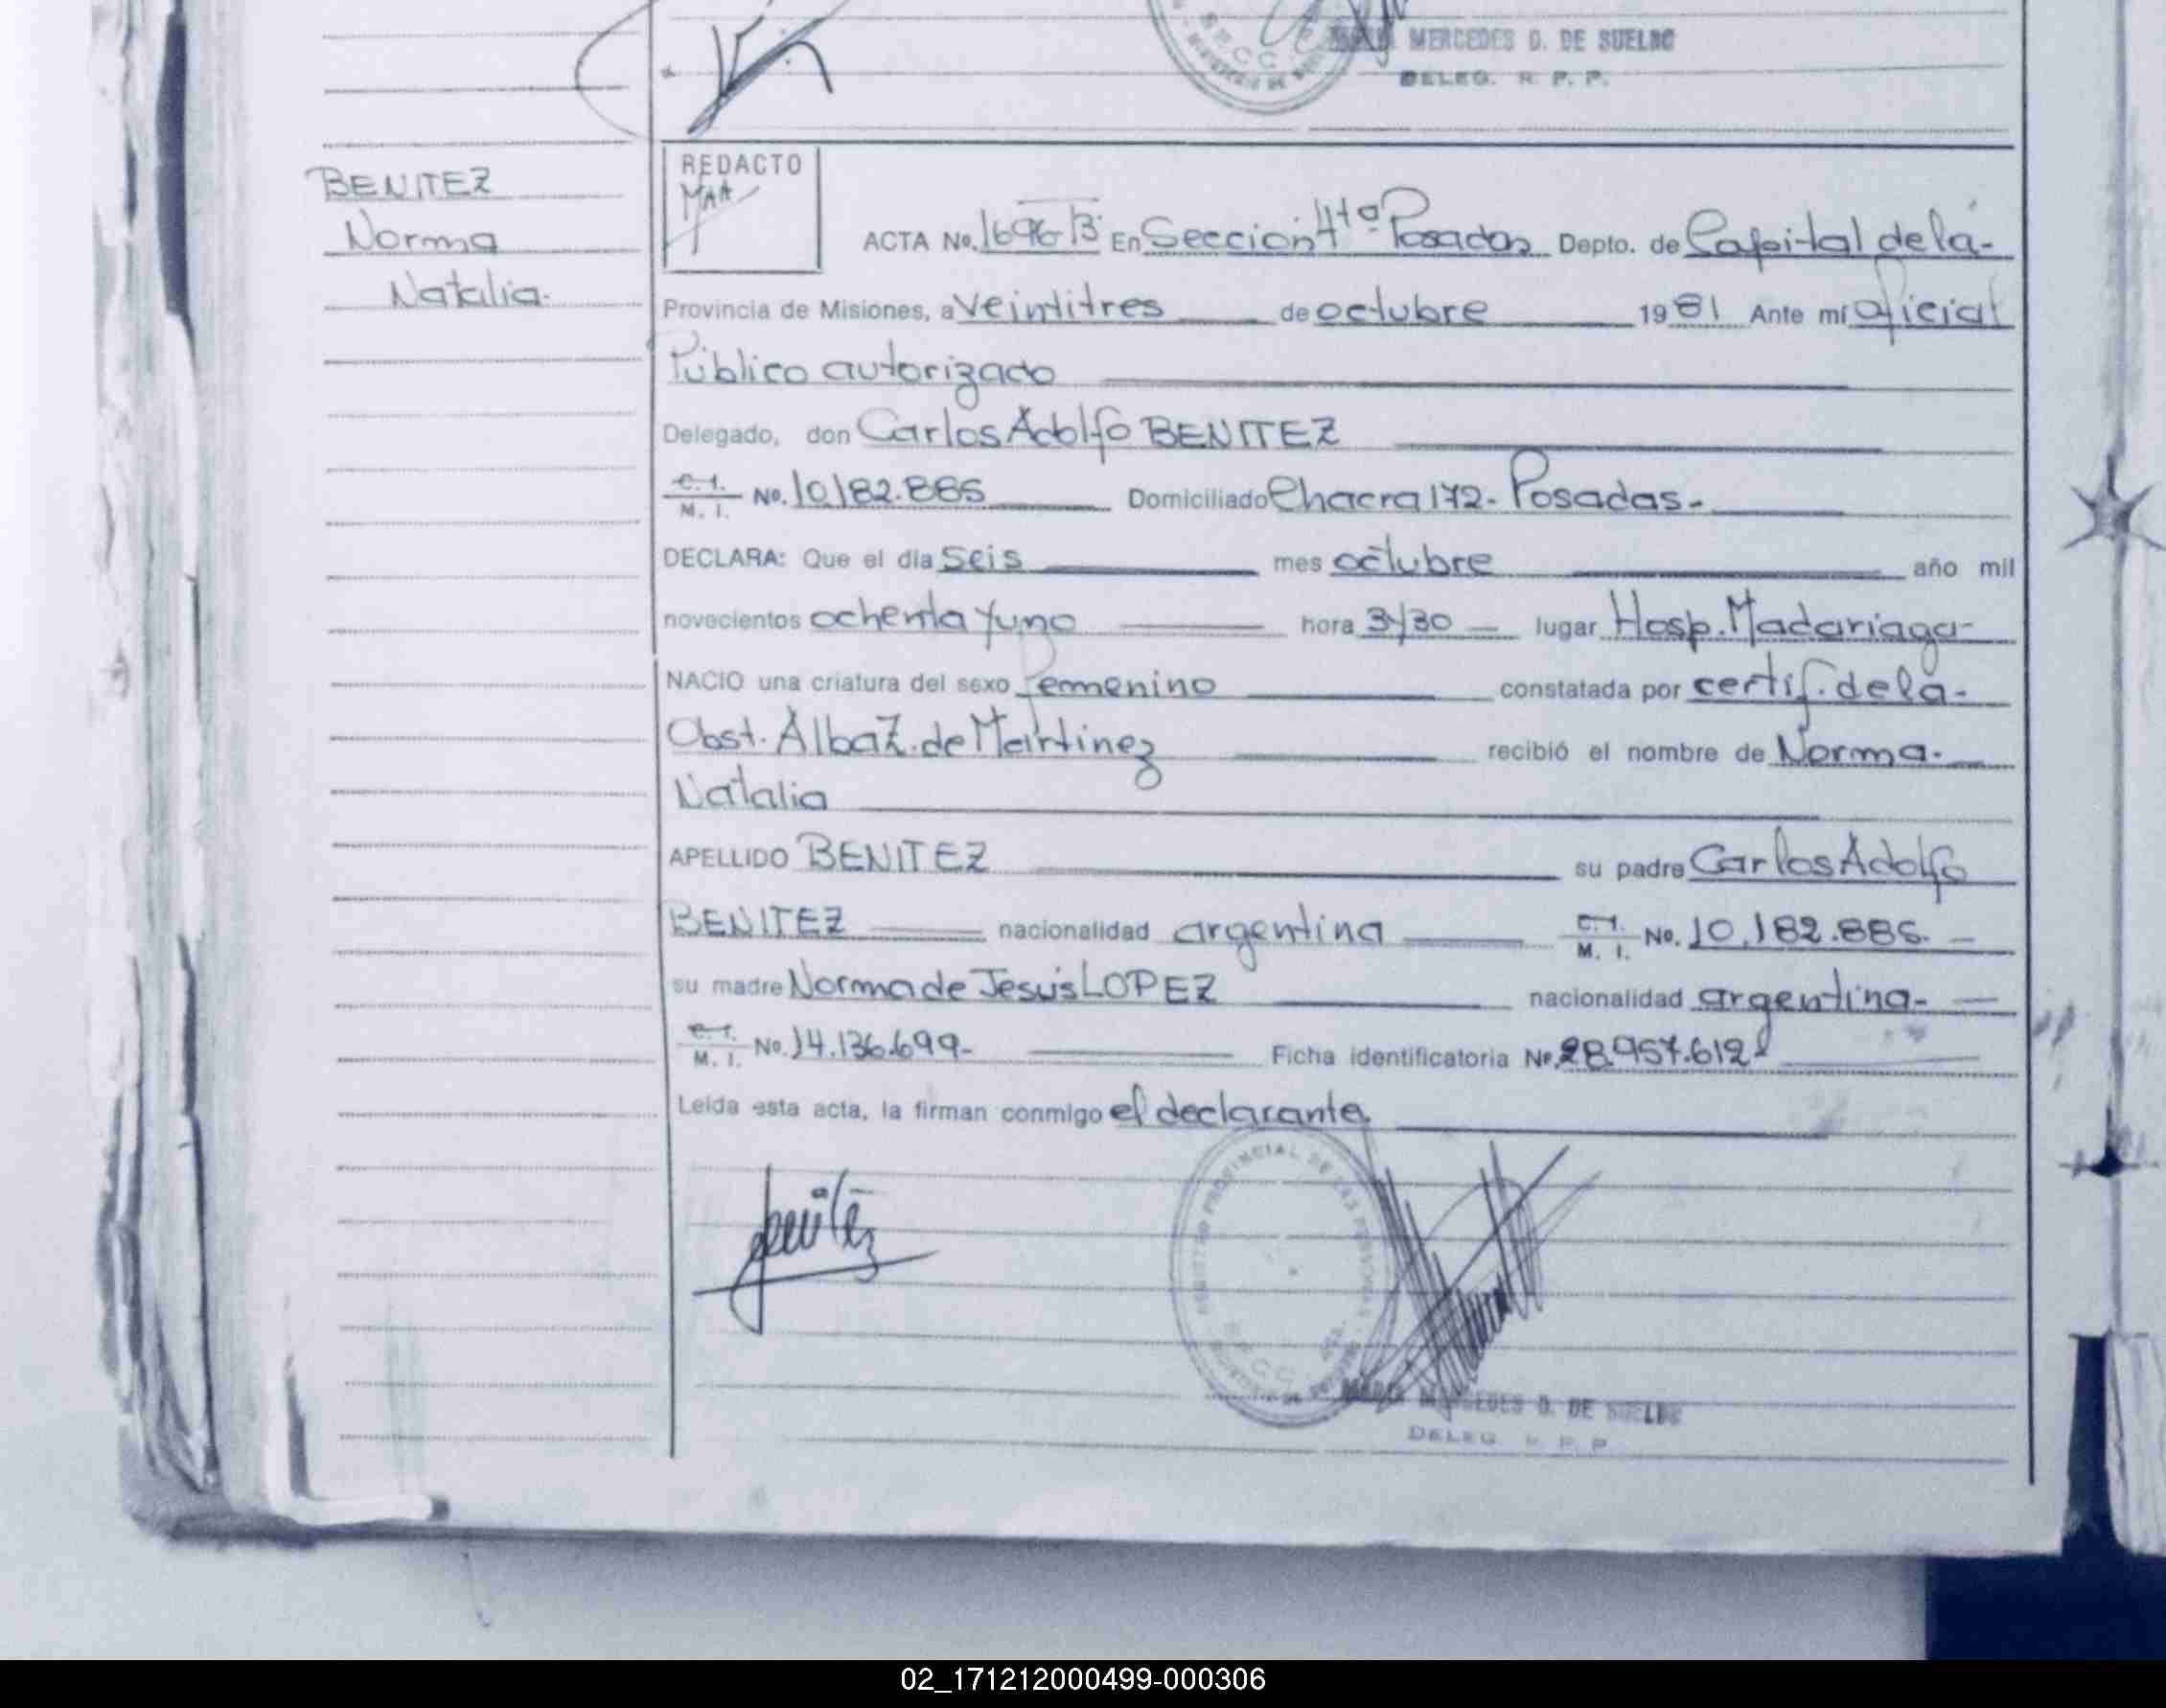 MERCEDES D. DE SUELDO
DELEG. R. P. P.
BENITEZ
Norma
Natalia.
REDACTO
ACTA No. 1696 B En Sección 4ta Posadas Depto. de Capital de la-
Provincia de Misiones, a veintitres de octubre 1981 Ante mí oficial
Público autorizado
Delegado, don Carlos Adolfo BENITEZ
C. I. M. I. No. 10.182.885 Domiciliado Chacra 172- Posadas-
DECLARA: Que el día seis mes octubre año mil
novecientos ochenta y uno hora 3/30 lugar Hosp. Madariaga-
NACIO una criatura del sexo femenino constatada por certif. de la-
Obst. Alba Z. de Martinez recibió el nombre de Norma-
Natalia
APELLIDO BENITEZ su padre Carlos Adolfo
BENITEZ nacionalidad argentina C. I. M. I. No. 10.182.885.
su madre Norma de Jesús LOPEZ nacionalidad argentina-
C. I. M. I. No. 14.136.699- Ficha identificatoria No. 28.957.612
Leida esta acta, la firman conmigo el declarante
Benitez
REGISTRO PROVINCIAL DE LAS PERSONAS
MARIA MERCEDES D. DE SUELDO
DELEG. R. P. P.
02_171212000499-000306